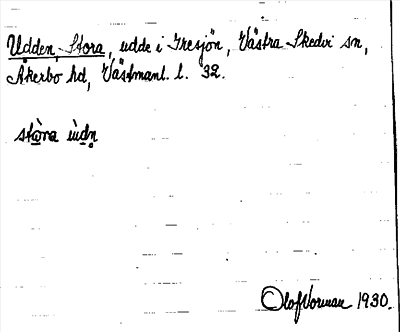 Udden, Stora, udde i Tresjön, Västra Skedvi sn,
Åkerbo hd, Västmanl. l. 32.
stòra ùdn̥
Olof Norman 1930.